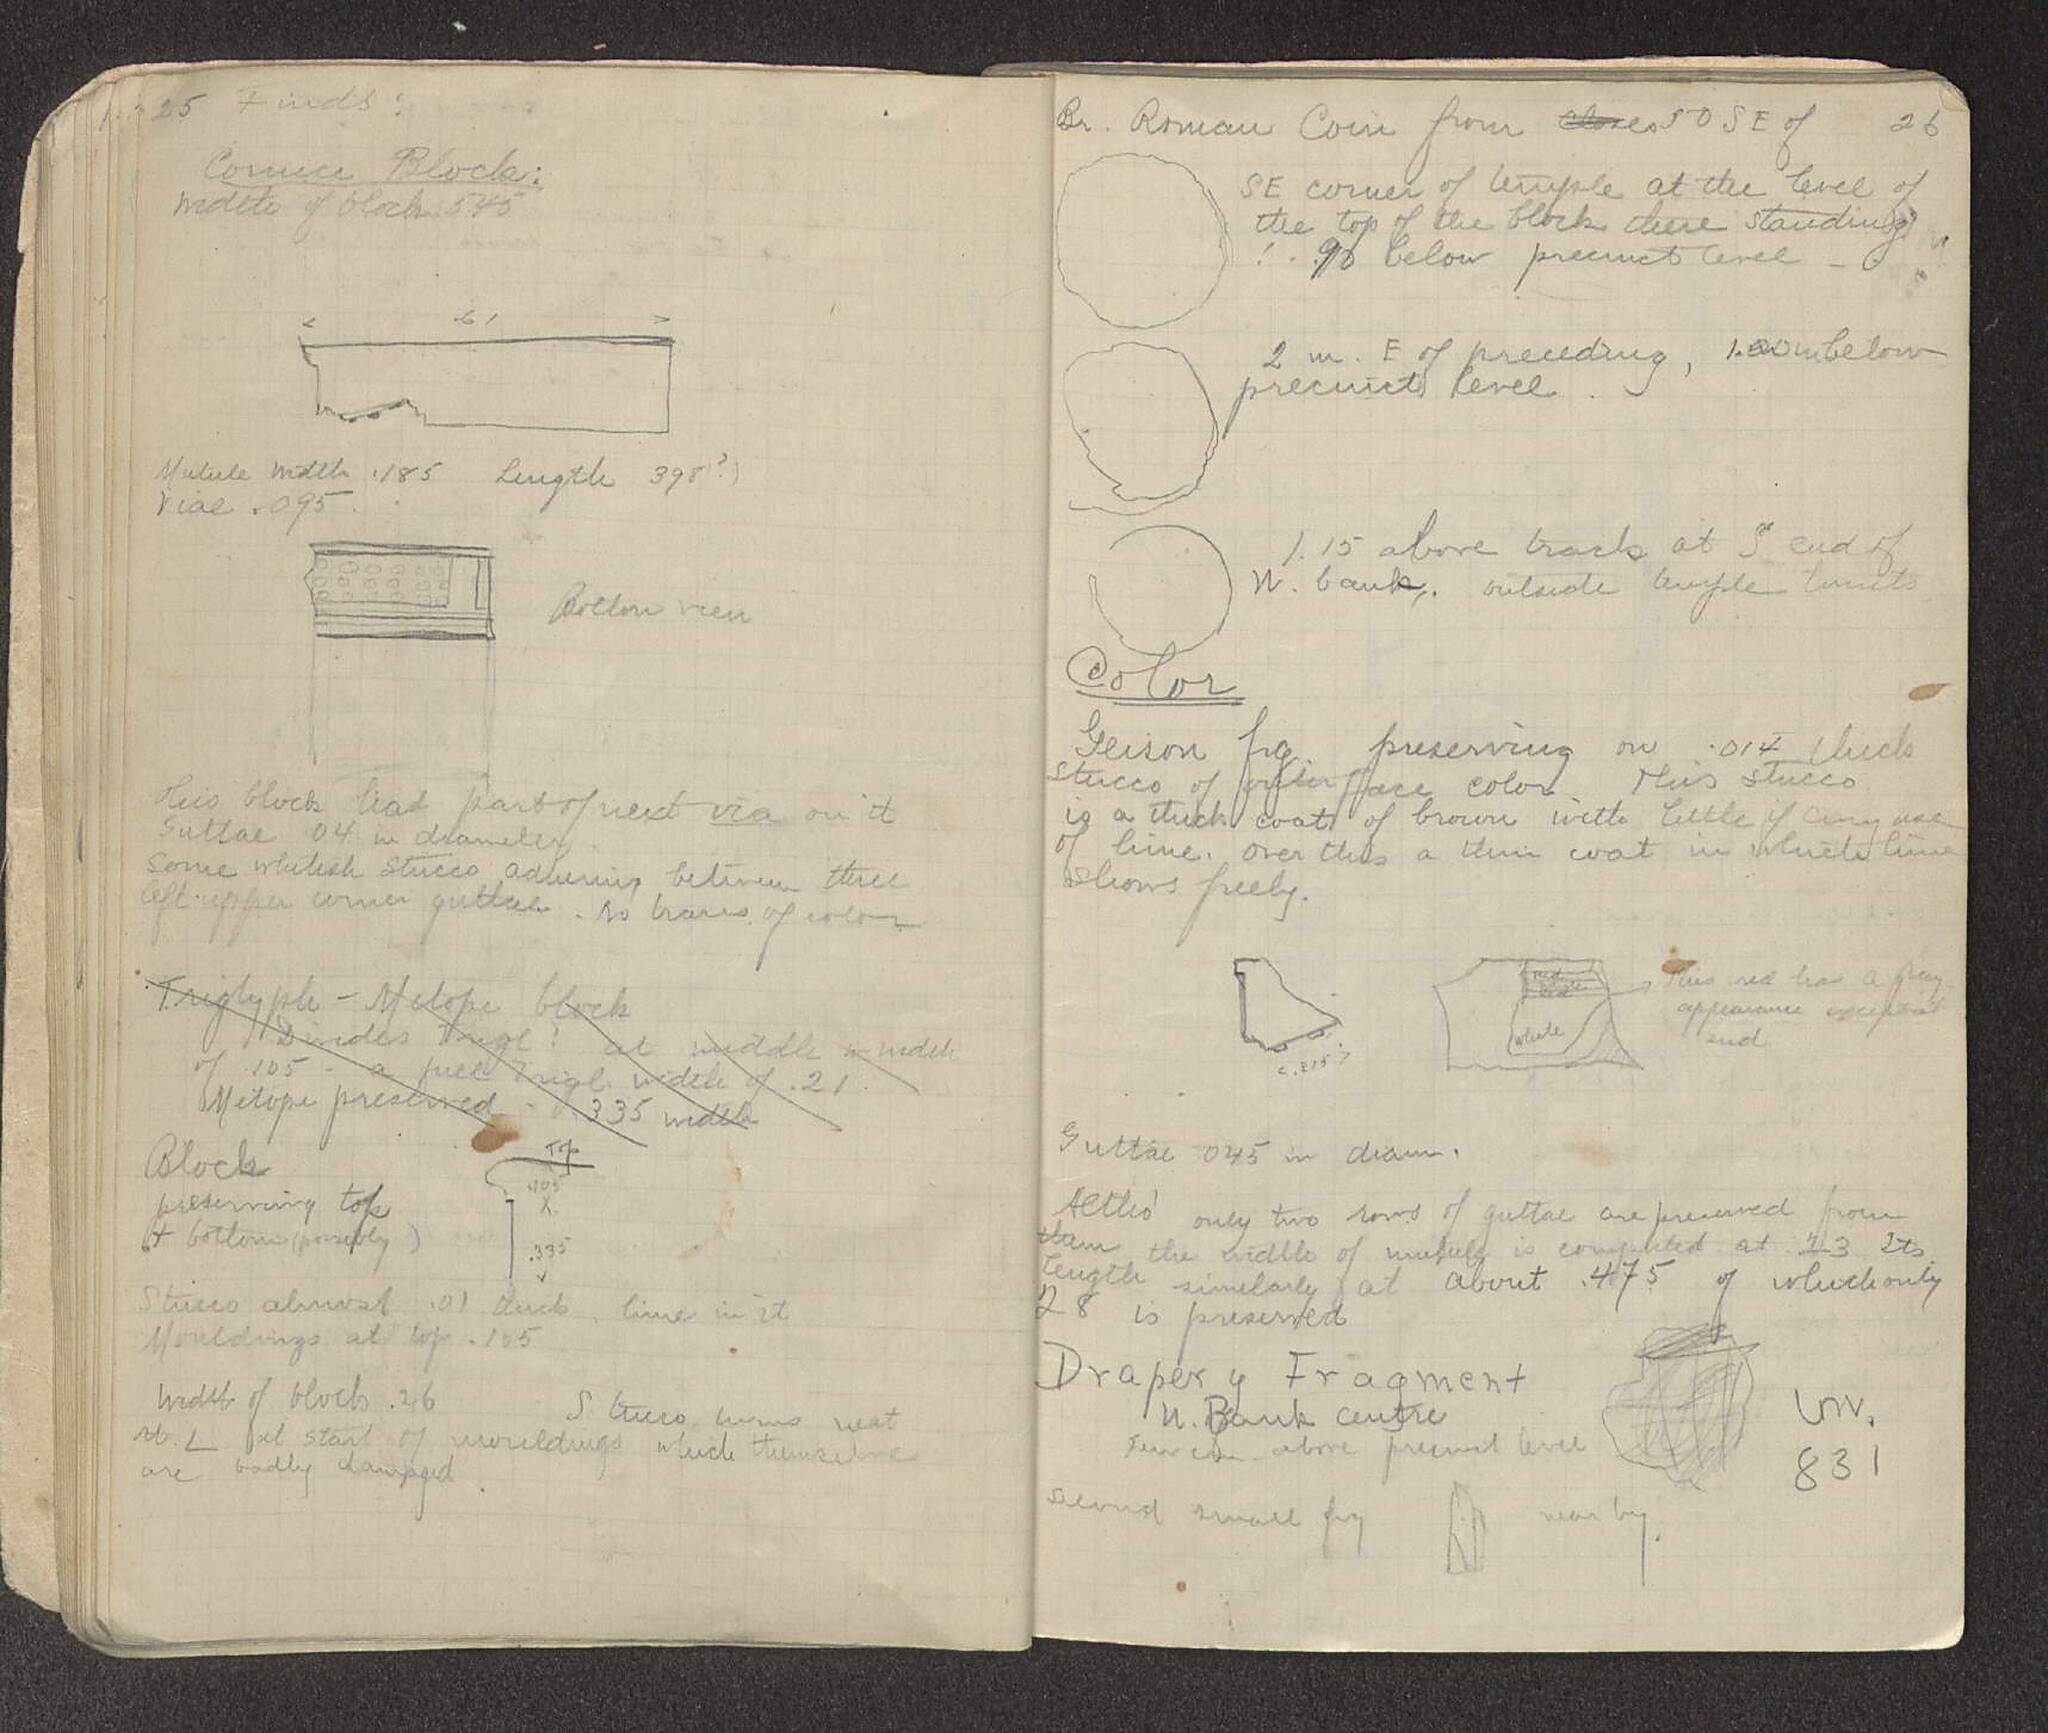 25 Finds:
Cornice Block:
Width of block .545
.61
Mutule width .185 Length 398(?)
Viae .095.
Bottom view
This block had part of next via on it
Guttae 04 in diameter
Some whitish stucco adhering between three
left upper corner guttae. No traces of colour
Triglyph - Metope block
Divides Trigl! at middle w width
of .105 - a full Trigl. width of .21.
Metope preserved - .335 width
Block
preserving top
+ bottom (possibly)
Top
.105
.335
Stucco almost .01 thick. lime in it
Mouldings at top .105
Width of block .26 Stucco turns neat
at start of mouldings which themselves
are badly damaged.
Br. Roman Coin from SE of 26
SE corner of temple at the level of
the top of the block there standing
! .90 below precinct level -
2 m. E of preceding, below
precinct level.
1.15 above track at S end of
N. bank, outside temple limits
Color
Geison frg. preserving on .014 thick
stucco of outer face color. This stucco
is a thick coat of brown with little if any use
of lime. Over this a thin coat in which lime
shows freely.
red
white
This red has a
appearance except at
end
Guttae .045 in diam.
Altho' only two rows of guttae are preserved from
them the width of mutule is computed at 23 Its
length similarly at about .475 of which only
28 is preserved
Drapery Fragment
N. Bank centre
few cm above precinct level
831
Second small frg near by.